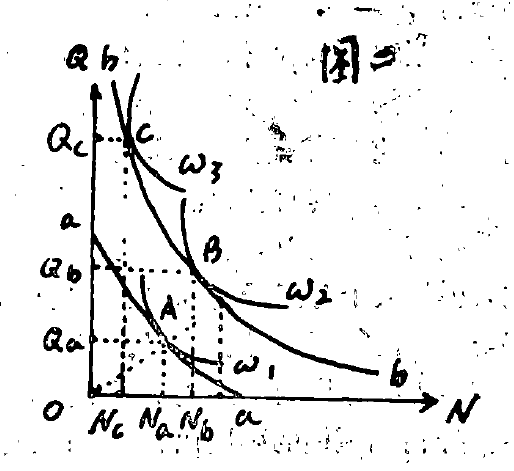 Q b 图二
Qc C
ω3
a
Qb B
ω2
A
Qa ω1
b
O Nc Na Nb a N